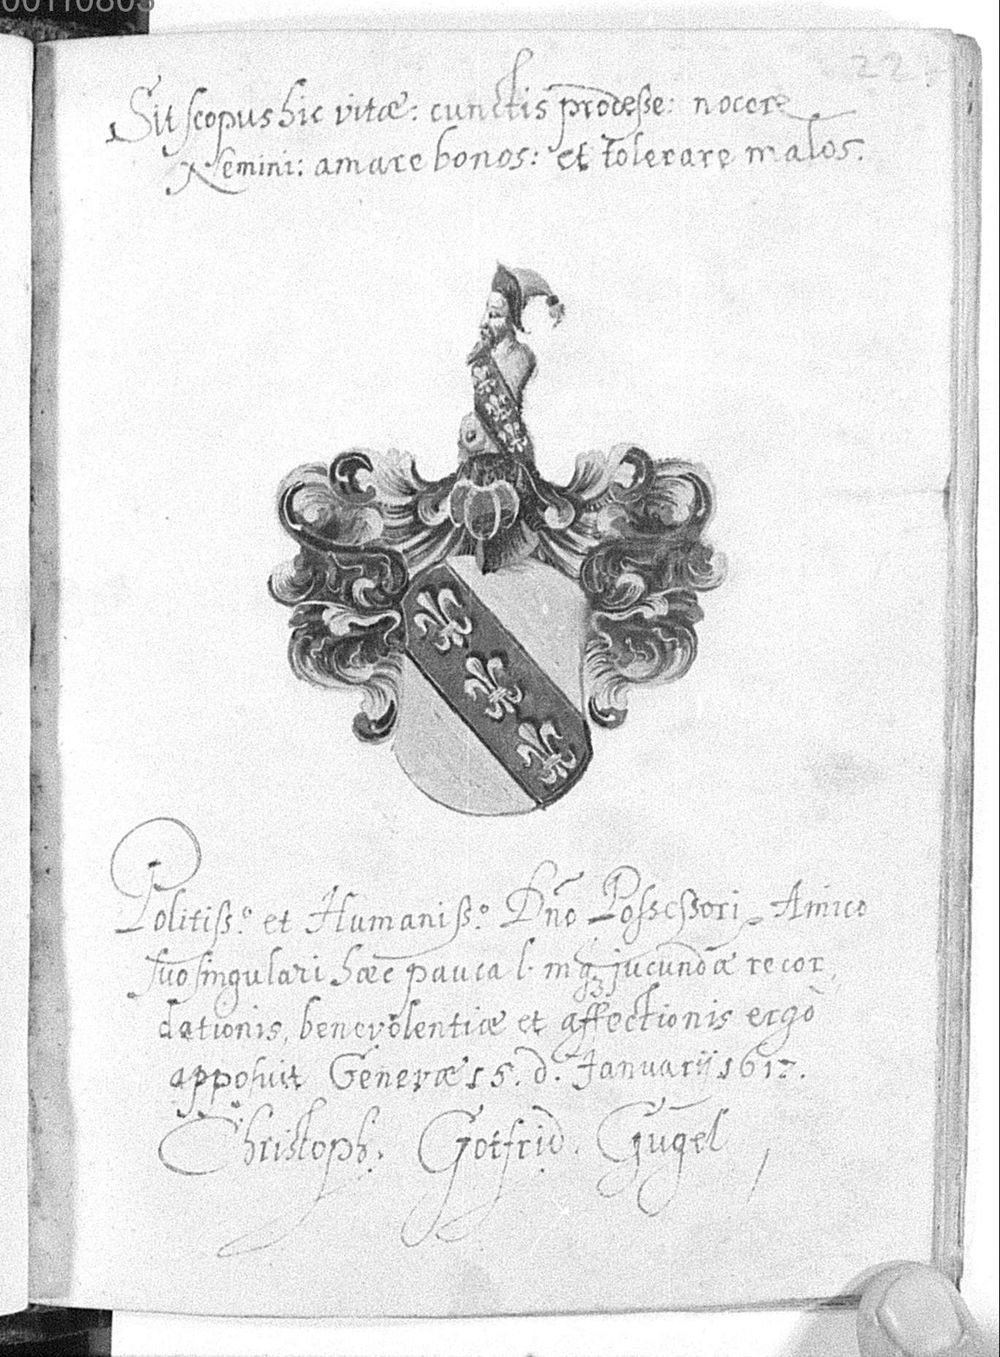 00110803
227
Sit scopus hic vitæ: cunctis prodeße: nocere
Nemini: amare bonos: et tolerare malos.
Politiß.º et Humaniß.º Dño Poßeßori, Amico
suo singulari hæc pauca l. mq; jucundæ recor,
dationis, benevolentiæ et affectionis ergò
apposuit Genevæ 15. d. Januarij 1617.
Christoph. Gotfrid. Gugel